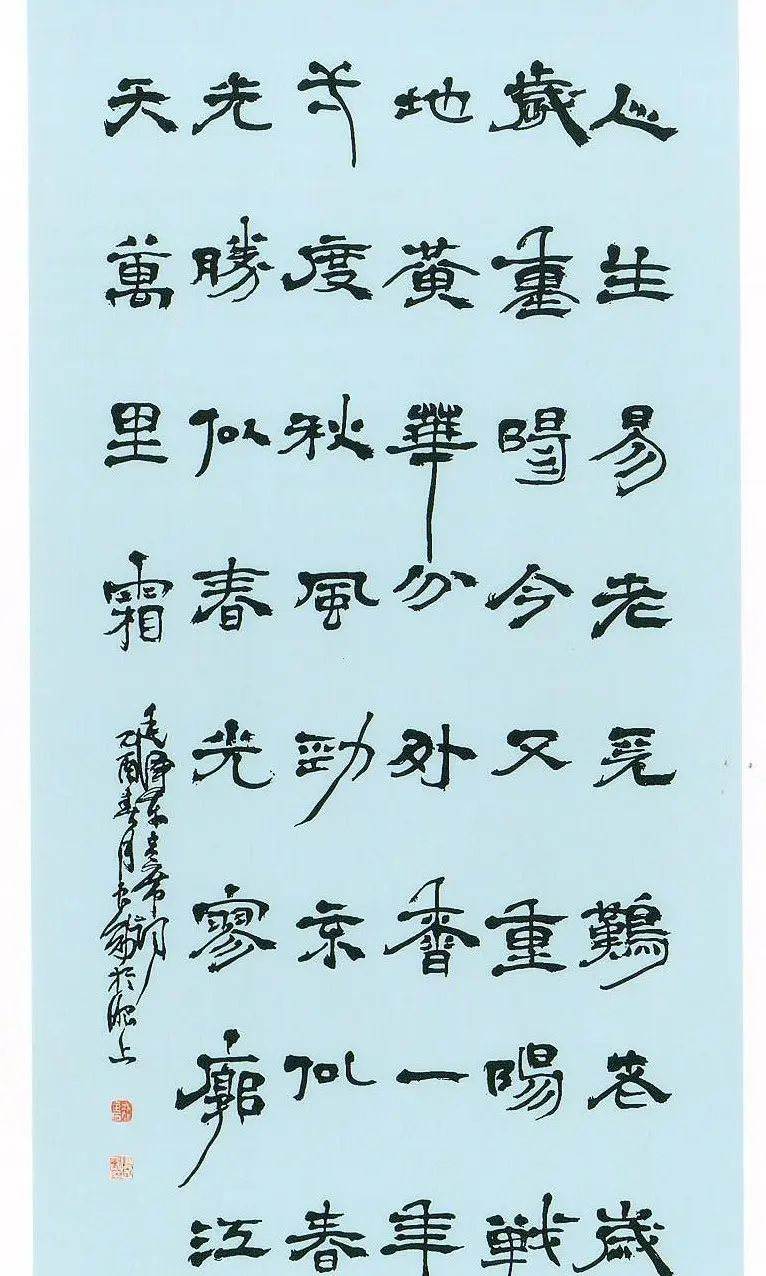 人生易老天難老歲
歲重陽今又重陽戰
地黃華分外香一年
一度秋風勁不似春
光勝似春光寥廓江
天萬里霜
毛澤東主席詞
乙酉春月於淝上